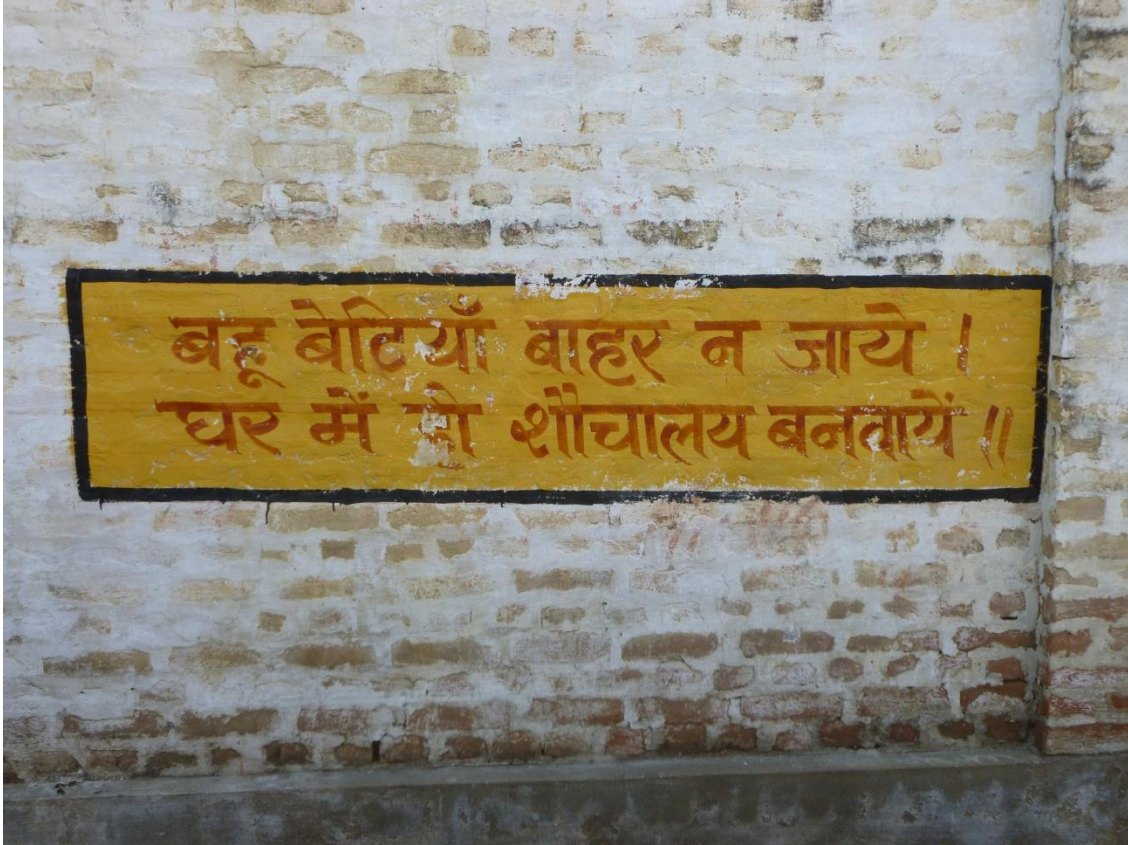 बहू बेटियाँ बाहर न जाये ।
घर में ही शौचालय बनवायें ॥